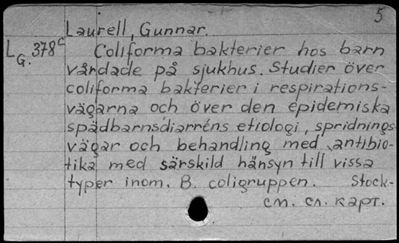 5
Laurell, Gunnar.
L G. 378c Coliforma bakterier hos barn
vårdade på sjukhus. Studier över
coliforma bakterier i respirations-
vägarna och över den epidemiska
spädbarnsdiarréns etiologi, spridnings-
vägar och behandling med antibio-
tika med särskild hänsyn till vissa
typer inom. B. coligruppen. Stock-
см. сл. карт.